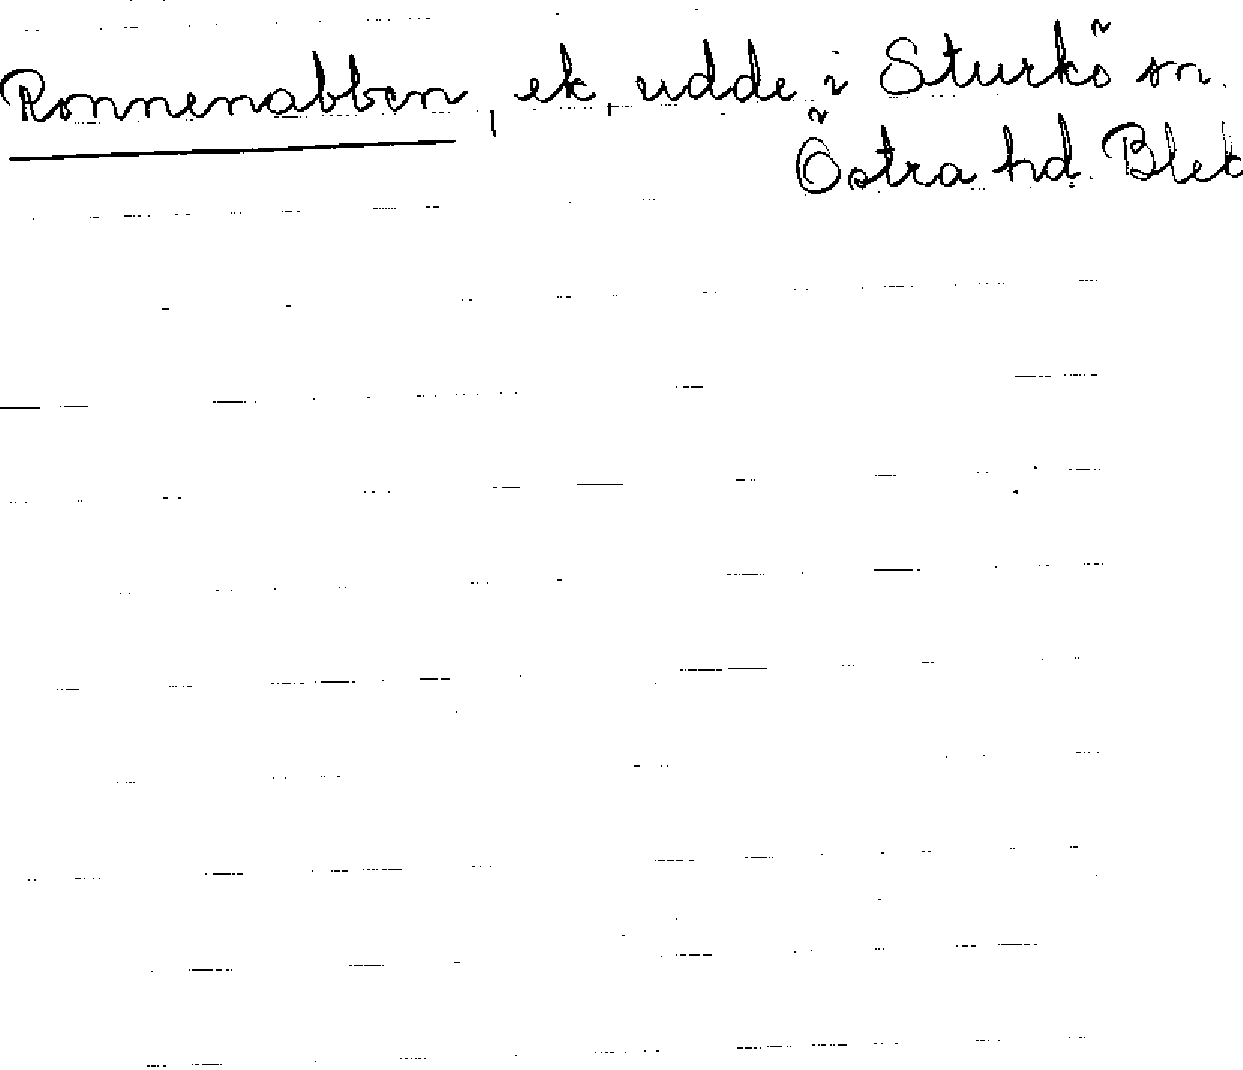 Ronnenabben, ek, udde i Sturkö sn.
Östra hd. Blek